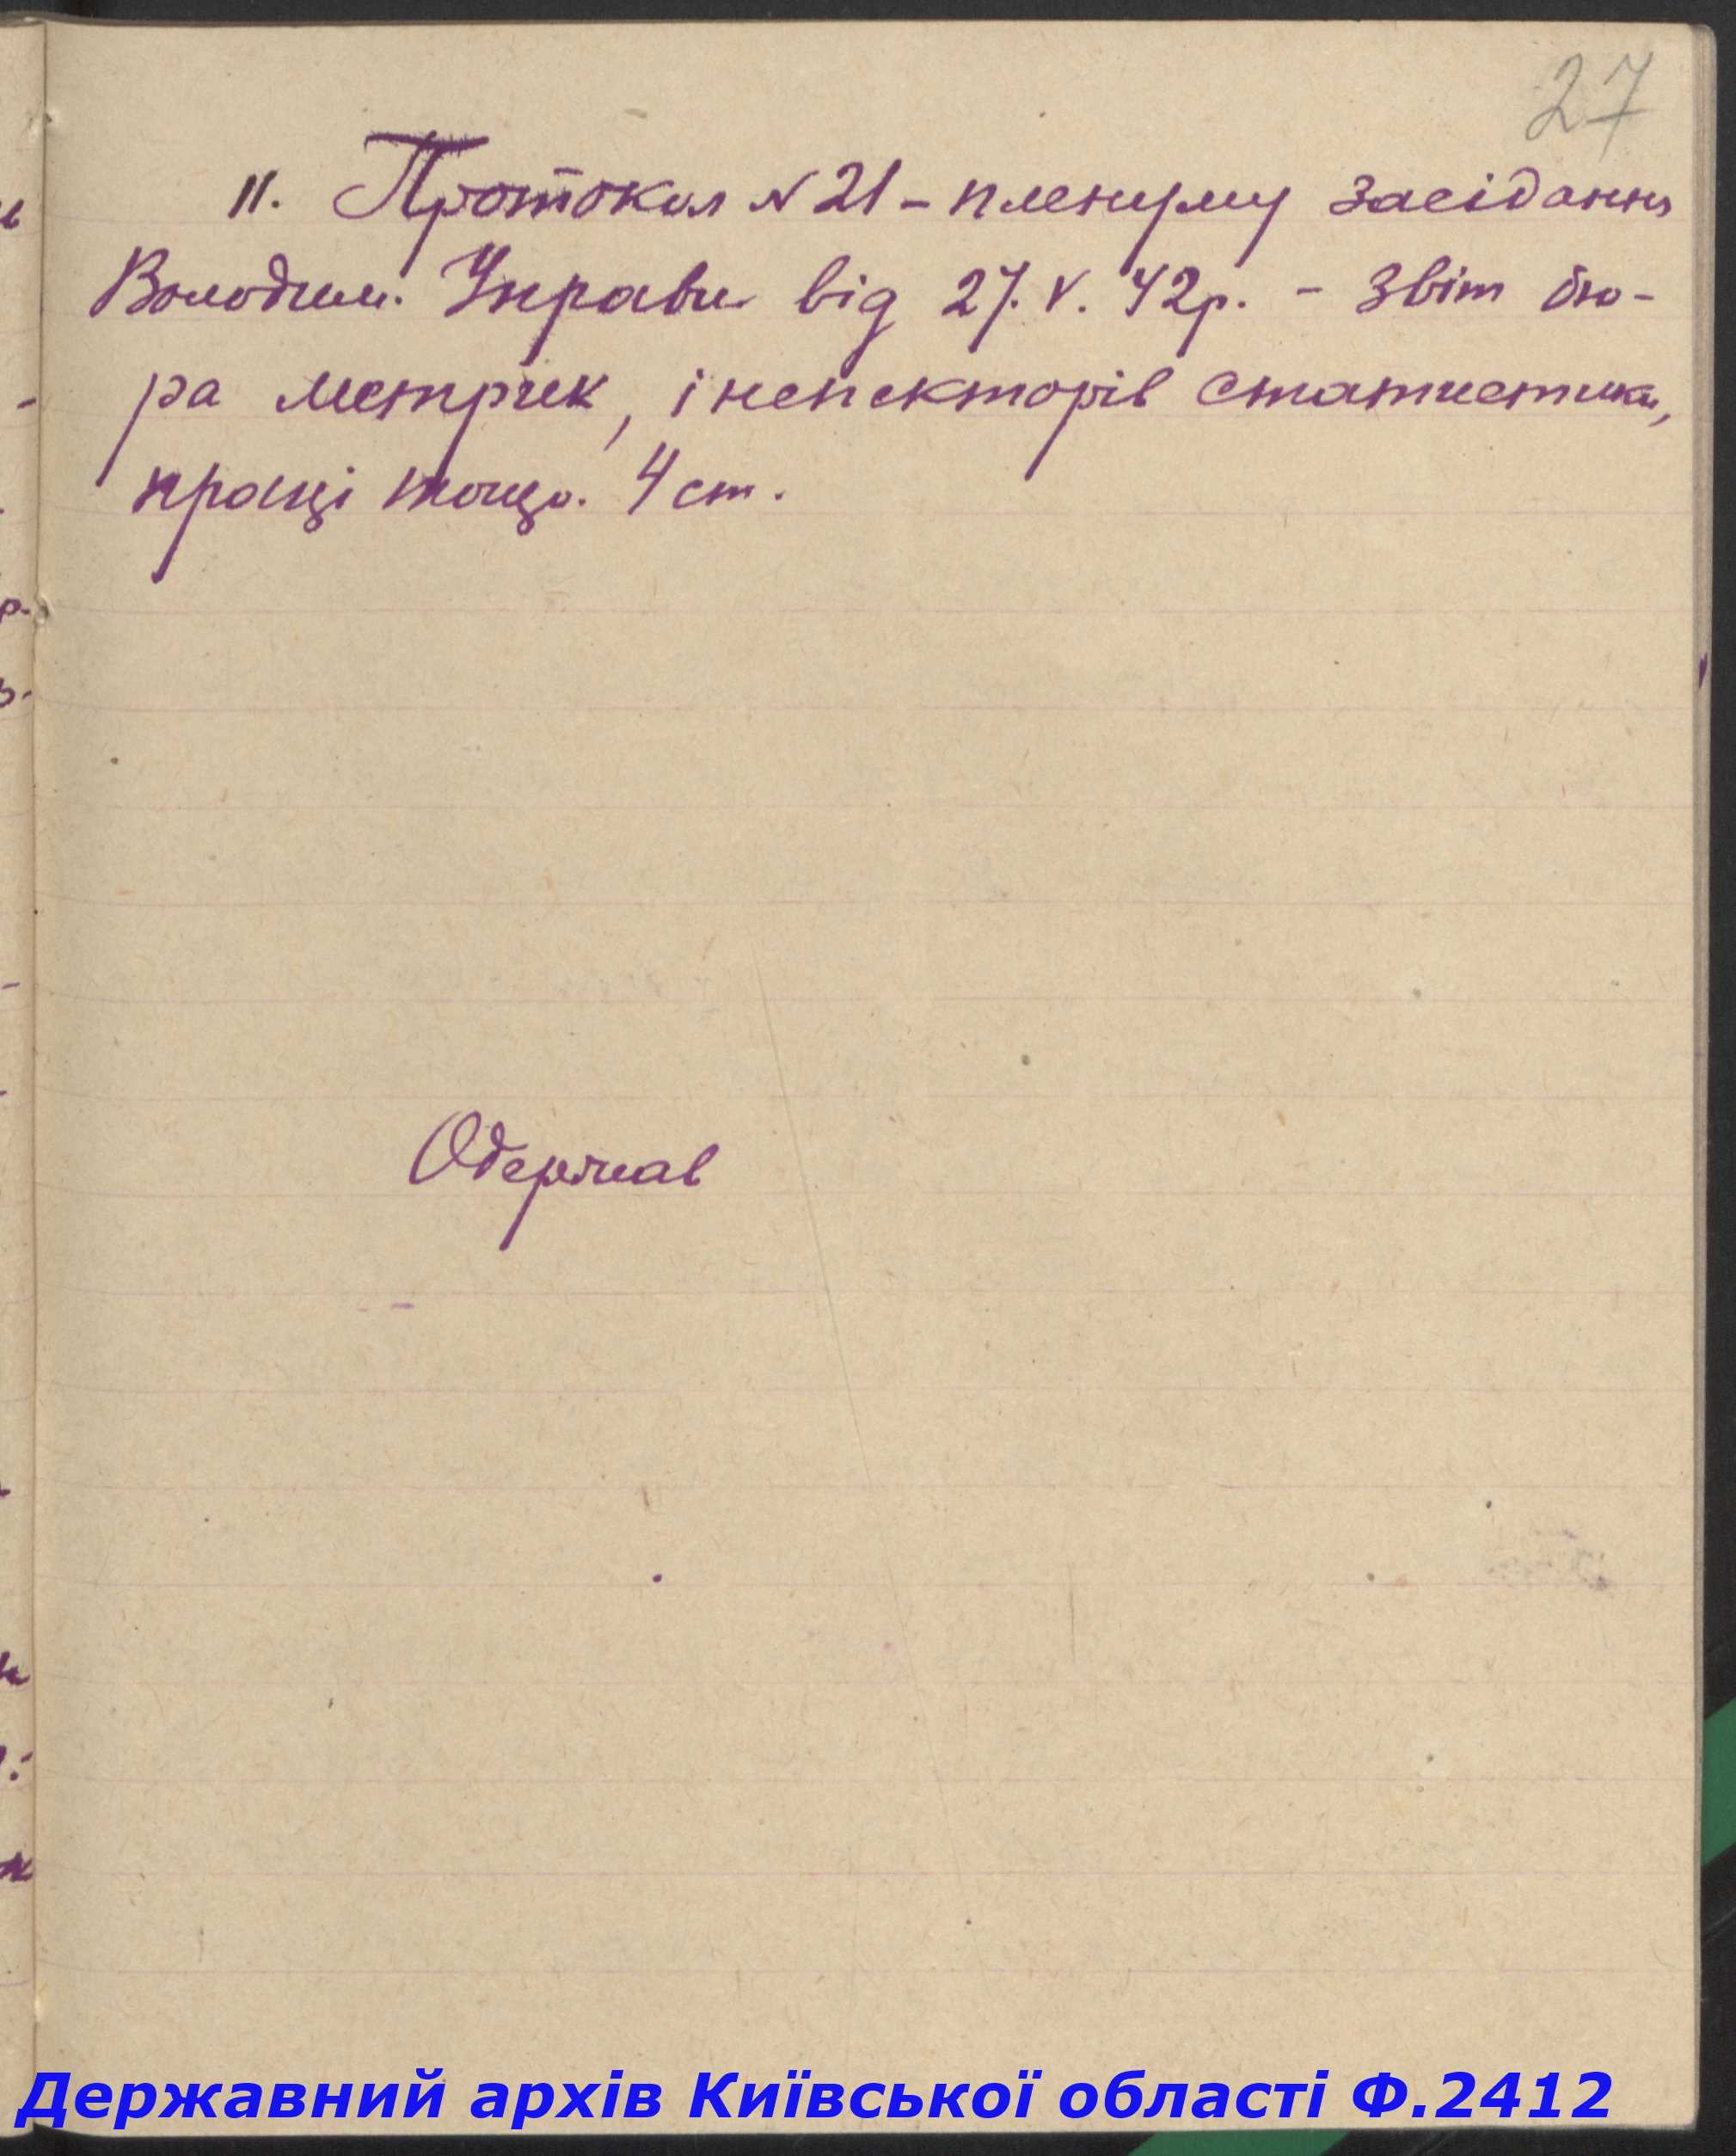 27
11. Протокол N 21 - пленуму засідання
Володим. Управи від 27. V. 42р. - Звіт бю-
ра метрик, інспекторів статистики,
праці тощо. 4 ст.
Одержав
Державний архів Київської області Ф.2412